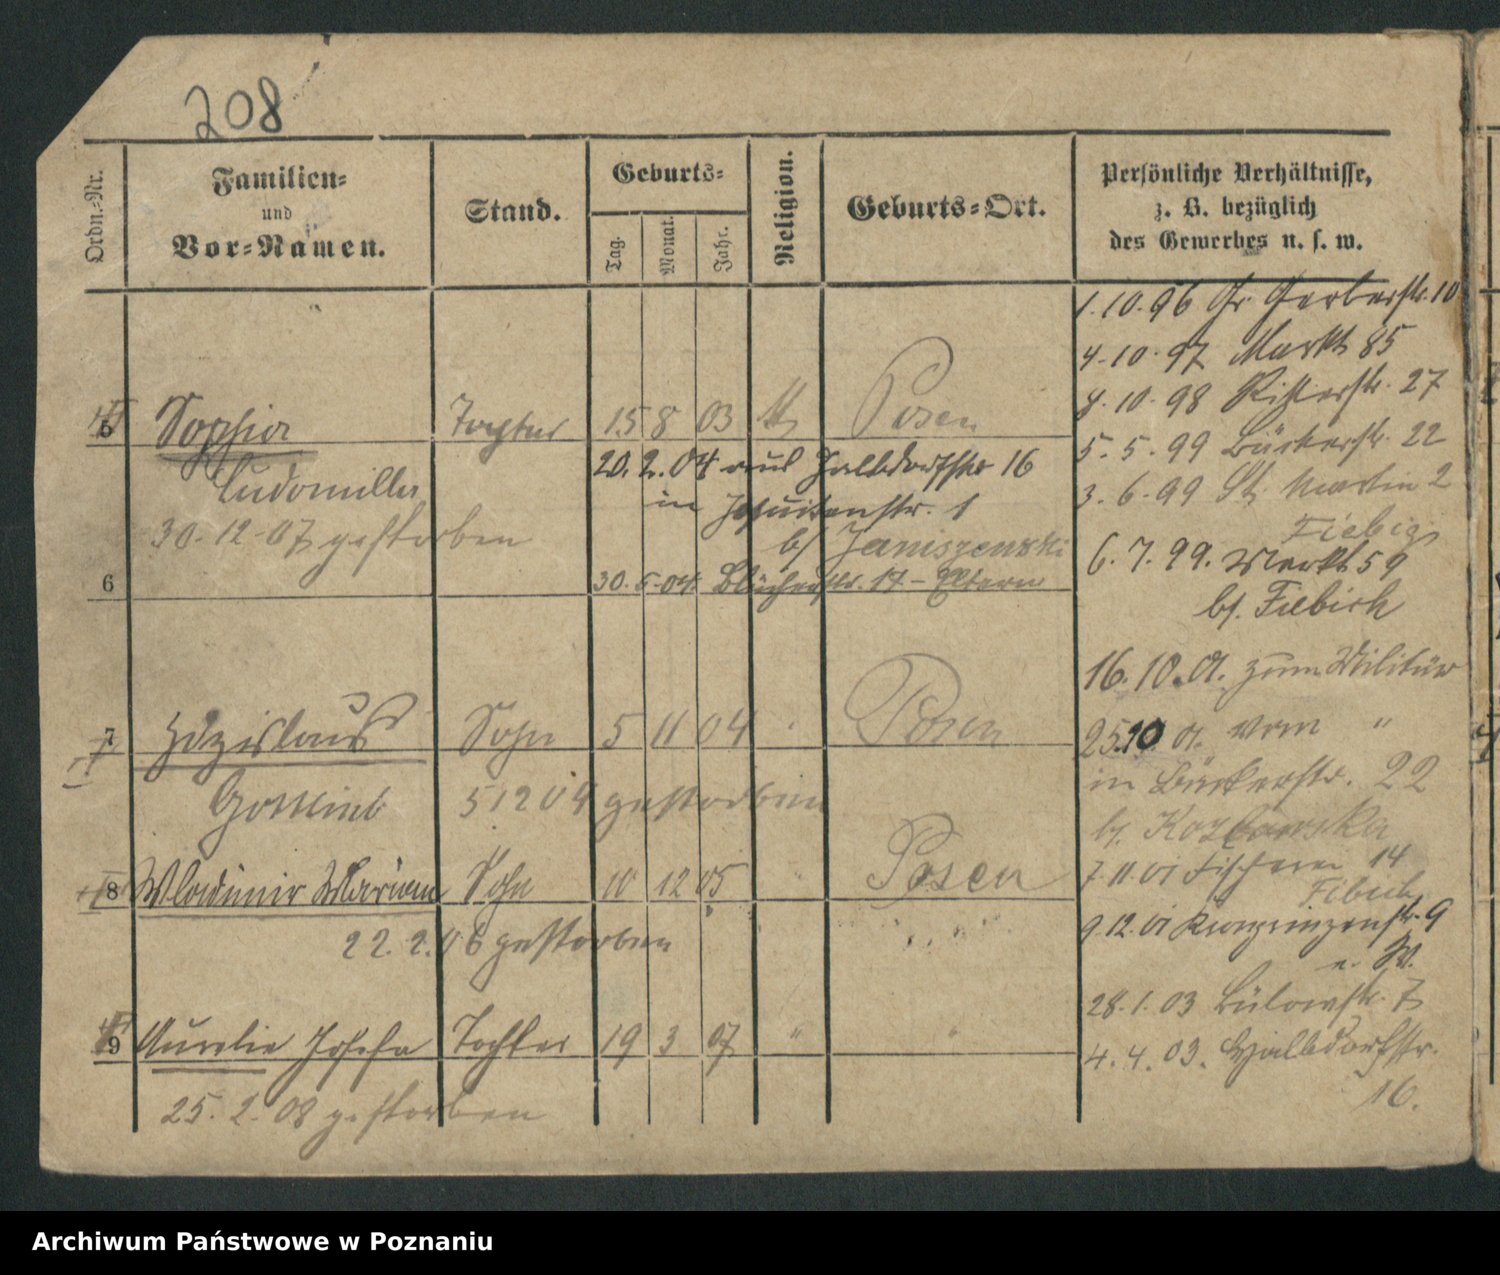 208
Ordn.-Nr.
Familien-
und
Vor-Namen.
Stand.
Geburts-
Tag.
Monat.
Jahr.
Religion.
Geburts-Ort.
Persönliche Verhältnisse,
z. B. bezüglich
des Gewerbes u. s. w.
5 Sophia Tochter 15 8 03 Posen
Ludomilla
30.12.07 gestorben
20.2.04 aus Halbdorfstr 16
in Jesuitenstr. 1
b/ Janiszewski
6 30.5.04 Blücherstr. 17 - Eltern
7 Zdzislaus Sohn 5 11 04 Posen
Gottlieb 5 12 04 gestorben
8 Wladimir Marian Sohn 10 12 05 " Posen
22.2.06 gestorben
9 Aurelie Josefa Tochter 19 3 07 " "
25.2.08 gestorben
1.10.96 Gr. Gerberstr. 10
4.10.97 Markt 85
4.10.98 Ritterstr. 27
5.5.99 Bäckerstr. 22
3.6.99 St. Martin 2
Fiebig
6.7.99. Markt 59
b/. Fiebich
16.10.01. zum Militär
25.10 01. vom "
in Bäckerstr. 22
b/. Kozlowska
7 11 01 Fischerei 14
Fibich
9.12.01 Kronprinzenstr. 9
28.1.03 Bülowstr. 7
4.4.03. Halbdorfstr.
16.
Archiwum Państwowe w Poznaniu